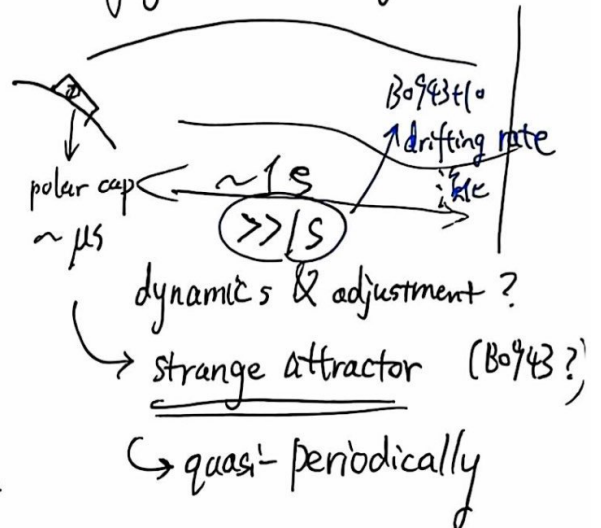 B0943+10
drifting rate
polar cap
~1s
~ μs
>>1s
dynamics & adjustment ?
strange attractor (B0943?)
quasi- periodically